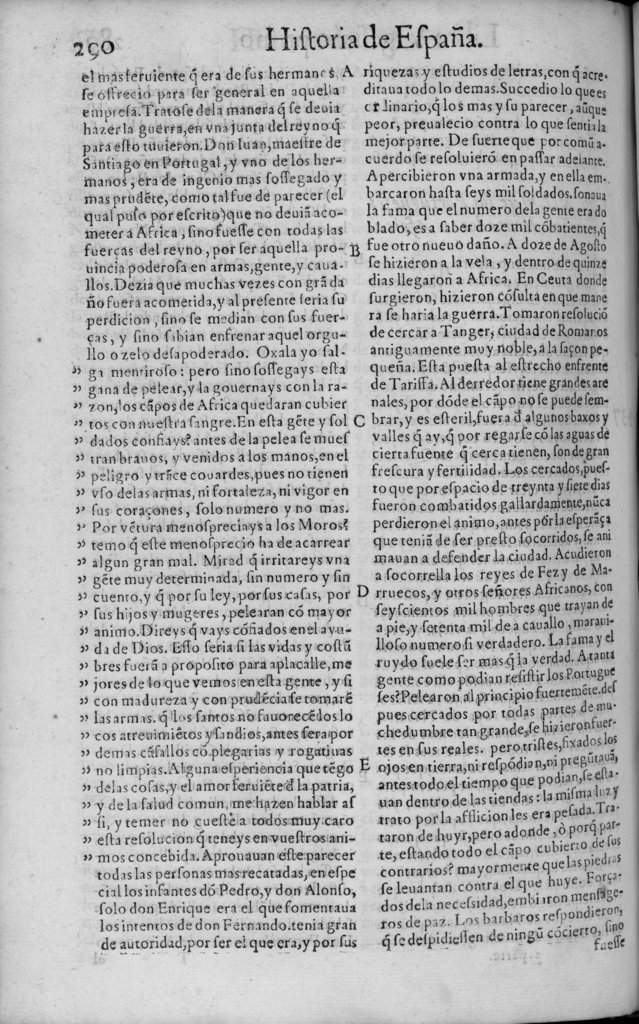 290
Historia de España.
el mas feruiente q̃ era de sus hermanos,
se offrecio para ser general en aquella
empresa. Tratose dela manera q̃ se deuia
hazer la guerra, en vna junta del reyno q̃
para esto tuuieron. Don Iuan, maestre de
Santiago en Portugal, y vno de los her-
manos, era de ingenio mas sossegado y
mas prudẽte, como tal fue de parecer (el
qual puso por escrito) que no deuiã aco-
meter a Africa, sino fuesse con todas las
fuerças del reyno, por ser aquella pro-
uincia poderosa en armas, gente, y caua-
llos. Dezia que muchas vezes con grã da
ño fuera acometida, y al presente seria su
perdicion, sino se median con sus fuer-
ças, y sino sabian enfrenar aquel orgu-
llo o zelo desapoderado. Oxala yo sal-
„ ga mentiroso: pero sino sossegays esta
„ gana de pelear, y la gouernays con la ra-
„ zon, los cãpos de Africa quedaran cubier
„ tos con nuestra sangre. En esta gẽte y sol
„ dados confiays? antes de la pelea se mues
„ tran brauos, y venidos a los manos, en el
„ peligro y trãce couardes, pues no tienen
„ vso delas armas, ni fortaleza, ni vigor en
„ sus coraçones, solo numero y no mas.
„ Por vẽtura menospreciays a los Moros?
„ temo q̃ este menosprecio ha de acarrear
„ algun gran mal. Mirad q̃ irritareys vna
„ gẽte muy determinada, sin numero y sin
„ cuento, y q̃ por su ley, por sus casas, por
„ sus hijos y mugeres, pelearan cõ mayor
„ animo. Direys q̃ vays cõfiados en el ayu-
„ da de Dios. Esto seria si las vidas y costũ
„ bres fuerã a proposito para aplacalle, me
„ jores de lo que vemos en esta gente, y si
„ con madurez y con prudẽcia se tomarẽ
„ las armas. q̃ los santos no fauorecẽ dos lo
„ cos atreuimiẽtos y sandios, antes sera por
„ demas cãsallos cõ plegarias y rogatiuas
„ no limpias. Alguna esperiencia que tẽgo
„ delas cosas, y el amor feruiẽte d̃ la patria,
„ y de la salud comun, me hazen hablar as
„ si, y temer no cueste a todos muy caro
„ esta resolucion q̃ teneys en vuestros ani-
„ mos concebida. Aprouauan este parecer
todas las personas mas recatadas, en espe
cial los infantes dõ Pedro, y don Alonso,
solo don Enrique era el que fomentaua
los intentos de don Fernando. tenia gran
de autoridad, por ser el que era, y por sus
A
B
C
D
E
riquezas y estudios de letras, con q̃ acre-
ditaua todo lo demas. Succedio lo que es
ordinario, q̃ los mas y su parecer, aũque
peor, preualecio contra lo que sentia la
mejor parte. De suerte que por comũ a-
cuerdo se resoluierõ en passar adelante.
Apercibieron vna armada, y en ella em-
barcaron hasta seys mil soldados. sonaua
la fama que el numero dela gente era do
blado, es a saber doze mil cõbatientes, q̃
fue otro nueuo daño. A doze de Agosto
se hizieron a la vela, y dentro de quinze
dias llegaron a Africa. En Ceuta donde
surgieron, hizieron cõsulta en que mane
ra se haria la guerra. Tomaron resoluciõ
de cercar a Tanger, ciudad de Romanos
antiguamente muy noble, a la saçon pe-
queña. Esta puesta al estrecho enfrente
de Tariffa. Al derredor tiene grandes are
nales, por dõde el cãpo no se puede sem-
brar, y es esteril, fuera d̃ algunos baxos y
valles q̃ ay, q̃ por regarse cõ las aguas de
cierta fuente q̃ cerca tienen, son de gran
frescura y fertilidad. Los cercados, pues-
to que por espacio de treynta y siete dias
fueron combatidos gallardamente, nũca
perdieron el animo, antes por la esperãça
que teniã de ser presto socorridos, se ani
mauan a defender la ciudad. Acudieron
a socorrella los reyes de Fez y de Ma-
rruecos, y otros señores Africanos, con
seyscientos mil hombres que trayan de
a pie, y setenta mil de a cauallo, maraui-
lloso numero si verdadero. La fama y el
ruydo suele ser mas q̃ la verdad. A tanta
gente como podian resistir los Portugue
ses? Pelearon al principio fuertemẽte. des
pues cercados por todas partes de mu-
chedumbre tan grande, se hizieron fuer-
tes en sus reales. pero tristes, fixados los
ojos en tierra, ni respõdian, ni pregũtauã,
antes todo el tiempo que podian, se esta-
uan dentro de las tiendas: la misma luz y
trato por la afflicion les era pesada. Tra-
taron de huyr, pero adonde, ò porq̃ par-
te, estando todo el cãpo cubierto de sus
contrarios? mayormente que las piedras
se leuantan contra el que huye. Força-
dos dela necessidad, embiaron mensage-
ros de paz. Los barbaros respondieron,
q̃ se despidiessen de ningũ cõcierto, sino
fuesse